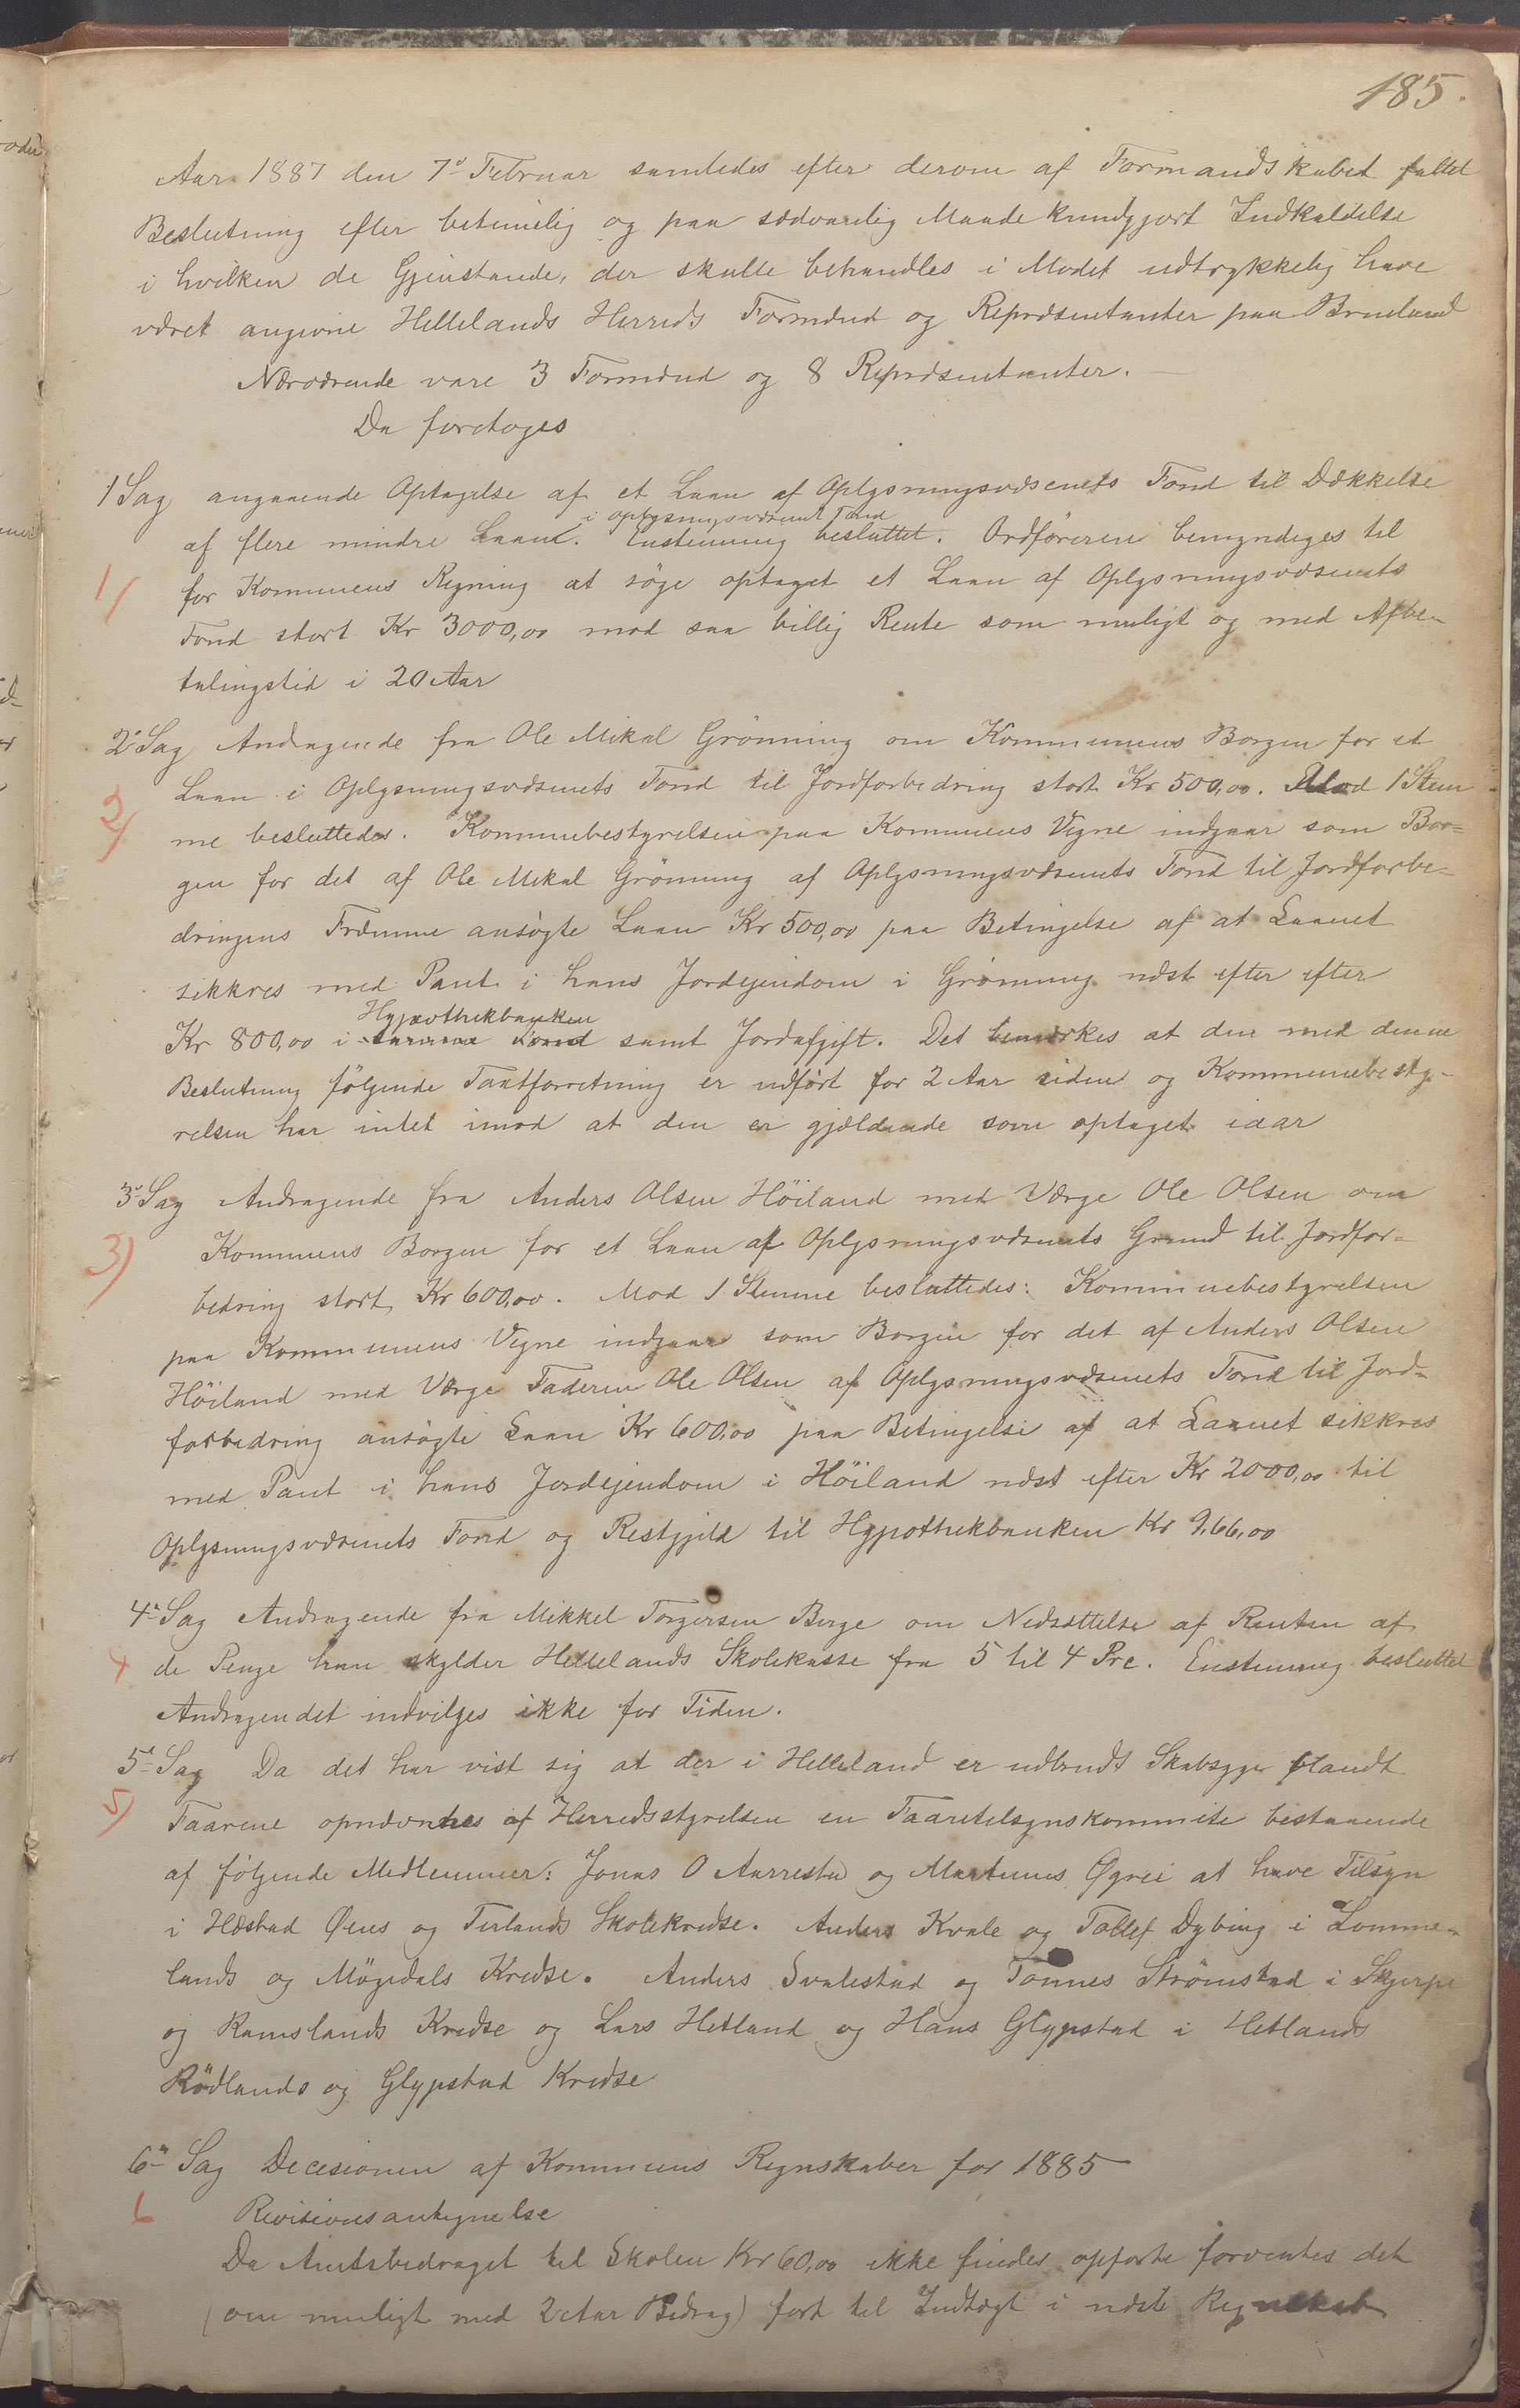 185.
Aar 1887 den 7de Februar samledes efter derom af Formandskabet fattet
Beslutning efter betimelig og paa sædvanlig Maade kundgjort Indkaldelse
i hvilken de Gjenstande, der skulle behandles i Mødet udtrykkelig have
været angivne Hellelands Herreds Formænd og Repræsentanter paa Brueland
Nærværende vare 3 Formænd og 8 Repræsentanter.
Da foretoges
1 Sag angaaende Optagelse af et Laan af Oplysningsvæsenets Fond til Dækkelse
i Oplysningsvæsenets Fond
af flere mindre Laan. Enstemmig besluttet. Ordføreren bemyndiges til
1/
for Kommunens Regning at søge optaget et Laan af Oplysningsvæsenets
Fond stort Kr 3000,00 mod saa billig Rente som muligt og med Afbe-
talingstid i 20 Aar
2- Sag Andragende fra Ole Mikal Grønning om Kommunens Borgen for et
Laan i Oplysningsvæsenets Fond til Jordforbedring stort Kr 500,00. Mod 1 Stem
2/
me besluttedes. Kommunebestyrelsen paa Kommunens Vegne indgaar som Bor=
gen for det af Ole Mikal Grønning af Oplysningsvæsenets Fond til Jordforbe=
dringens Fremme ansøgte Laan Kr 500,00 paa Betingelse af at Laanet
sikkres med Pant i hans Jordejendom i Grønning næst efter efter
Hypothekbanken
Kr 800,00 i samme Fond samt Jordafgift. Det bemærkes at den med denne
Beslutning følgende Taxtforretning er udført for 2 Aar siden og Kommunebesty-
relsen har intet imod at den er gjældende som optaget iaar
3- Sag Andragende fra Anders Olsen Höiland med Værge Ole Olsen om
3)
Kommunens Borgen for et Laan af Oplysningsvæsenets Grund til Jordfor=
bedring stort Kr 600,00. Mod 1 Stemme besluttedes: Kommunebestyrelsen
paa Kommunens Vegne indgaar som Borgen for det af Anders Olsen
Höiland med Værge Faderen Ole Olsen af Oplysningsvæsenets Fond til Jord=
forbedring ansøgte Laan Kr 600,00 paa Betingelse af at Laanet sikkres
med Pant i hans Jordejendom i Höiland næst efter Kr 2000,00 til
Oplysningsvæsenets Fond og Restgjeld til Hypothekbanken Kr 966,00
4- Sag Andragende fra Mikkel Torgersen Berge om Nedsættelse af Renten af
de Penge han skylder Hellelands Skolekasse fra 5 til 4 Prc. Enstemmig besluttet
Andragendet indvilges ikke for Tiden.
5- Sag Da det har vist sig at der i Helleland er udbrudt Skabsyge blandt
5)
Faarene opnævntes af Herredsstyrelsen en Faaretilsynskommite bestaaende
af følgende Medlemmer: Jonas O Aarrestad og Martinus Øgrei at have Tilsyn
i Hæstad Øens og Terlands Skolekredse. Anders Kvale og Tollef Dybing i Lomme=
lands og Møgedals Kredse. Anders Svalestad og Tønnes Strømstad i Skjerpe
og Ramslands Kredse og Lars Hetland og Hans Glypstad i Hetlands
Rødlands og Glypstad Kredse
6- Sag Decesionen af Kommunens Regnskaber for 1885
6
Revisionsantegnelse
Da Amtsbedraget til Skolen Kr 60,00 ikke findes opførte forventes det
(om muligt med 2 Aar Bidrag) ført til Indtægt i næste Regnskab